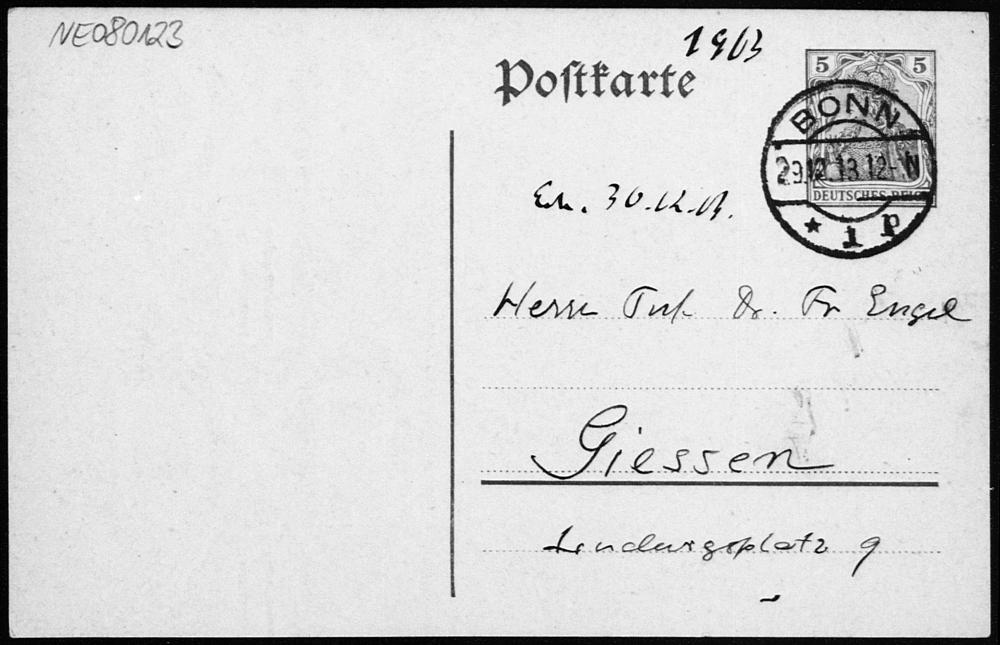 NE080123
1913
Postkarte
5 5
BONN
29.12.13.12-N
DEUTSCHES REICH
* 1 p
Erh. 30.12.13.
Herrn Prof. Dr. Fr Engel
Giessen
9